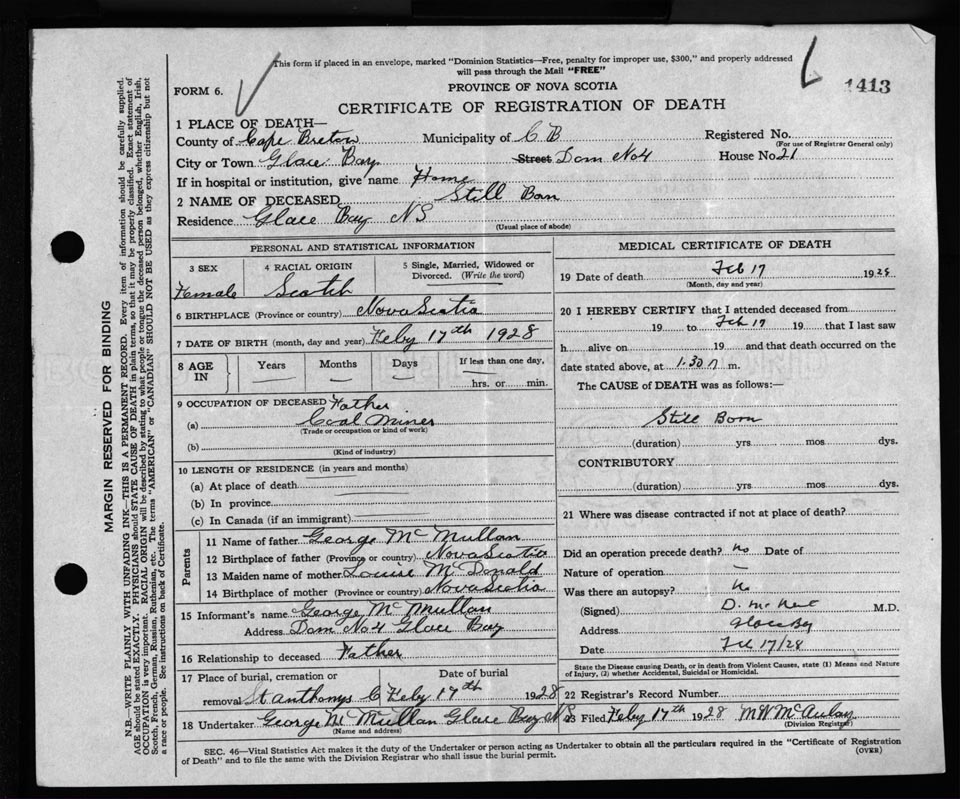 This form if placed in an envelope, marked "Dominion Statistics—Free, penalty for improper use, $300," and properly addressed
will pass through the Mail "FREE"
1413
FORM 6.
PROVINCE OF NOVA SCOTIA
CERTIFICATE OF REGISTRATION OF DEATH
1 PLACE OF DEATH—
County of Cape Breton Municipality of C B Registered No.
(For use of Registrar General only)
City or Town Glace Bay Street Dom No 4 House No. 21
If in hospital or institution, give name Home
2 NAME OF DECEASED Still Born
Residence Glace Bay NS
(Usual place of abode)
PERSONAL AND STATISTICAL INFORMATION
3 SEX 4 RACIAL ORIGIN 5 Single, Married, Widowed or Divorced. (Write the word)
Female Scotch
6 BIRTHPLACE (Province or country) Nova Scotia
7 DATE OF BIRTH (month, day and year) Feby 17th 1928
8 AGE IN Years Months Days If less than one day,
hrs. or min.
9 OCCUPATION OF DECEASED Father
(a) Coal Miner
(Trade or occupation or kind of work)
(b)
(Kind of industry)
10 LENGTH OF RESIDENCE (in years and months)
(a) At place of death
(b) In province
(c) In Canada (if an immigrant)
Parents
11 Name of father George McMullan
12 Birthplace of father (Province or country) Nova Scotia
13 Maiden name of mother Louise McDonald
14 Birthplace of mother (Province or country) Nova Scotia
15 Informant's name George McMullan
Address Dom No 4 Glace Bay
16 Relationship to deceased Father
17 Place of burial, cremation or removal Date of burial
St Anthonys C Feby 17th 1928
18 Undertaker George McMullan Glace Bay NS
(Name and address)
MEDICAL CERTIFICATE OF DEATH
19 Date of death Feb 17 1928
(Month, day and year)
20 I HEREBY CERTIFY that I attended deceased from
19 to Feb 17 19 that I last saw
h alive on 19 and that death occurred on the
date stated above, at 1.30 m.
The CAUSE of DEATH was as follows:—
Still Born
(duration) yrs. mos dys.
CONTRIBUTORY
(duration) yrs. mos dys.
21 Where was disease contracted if not at place of death?
Did an operation precede death? No Date of
Nature of operation —
Was there an autopsy? No
(Signed) M.D.
Address Glace Bay
Date Feb 17/28
State the Disease causing Death, or in death from Violent Causes, state (1) Means and Nature
of Injury, (2) whether Accidental, Suicidal or Homicidal.
22 Registrar's Record Number
23 Filed Feby 17th 1928 M W McAulay
(Division Registrar)
SEC. 46—Vital Statistics Act makes it the duty of the Undertaker or person acting as Undertaker to obtain all the particulars required in the "Certificate of Registration
of Death" and to file the same with the Division Registrar who shall issue the burial permit.
(OVER)
MARGIN RESERVED FOR BINDING
N.B.—WRITE PLAINLY WITH UNFADING INK—THIS IS A PERMANENT RECORD. Every item of information should be carefully supplied.
AGE should be stated EXACTLY. PHYSICIANS should STATE CAUSE OF DEATH in plain terms, so that it may be properly classified. Exact statement of
OCCUPATION is very important. RACIAL ORIGIN will be described by stating to what people or tongue the deceased person belonged, whether English, Irish,
Scotch, French, German, Russian, Ruthenian, etc. The terms "AMERICAN" or "CANADIAN" SHOULD NOT BE USED as they express citizenship but not
a race or people. See instructions on back of Certificate.